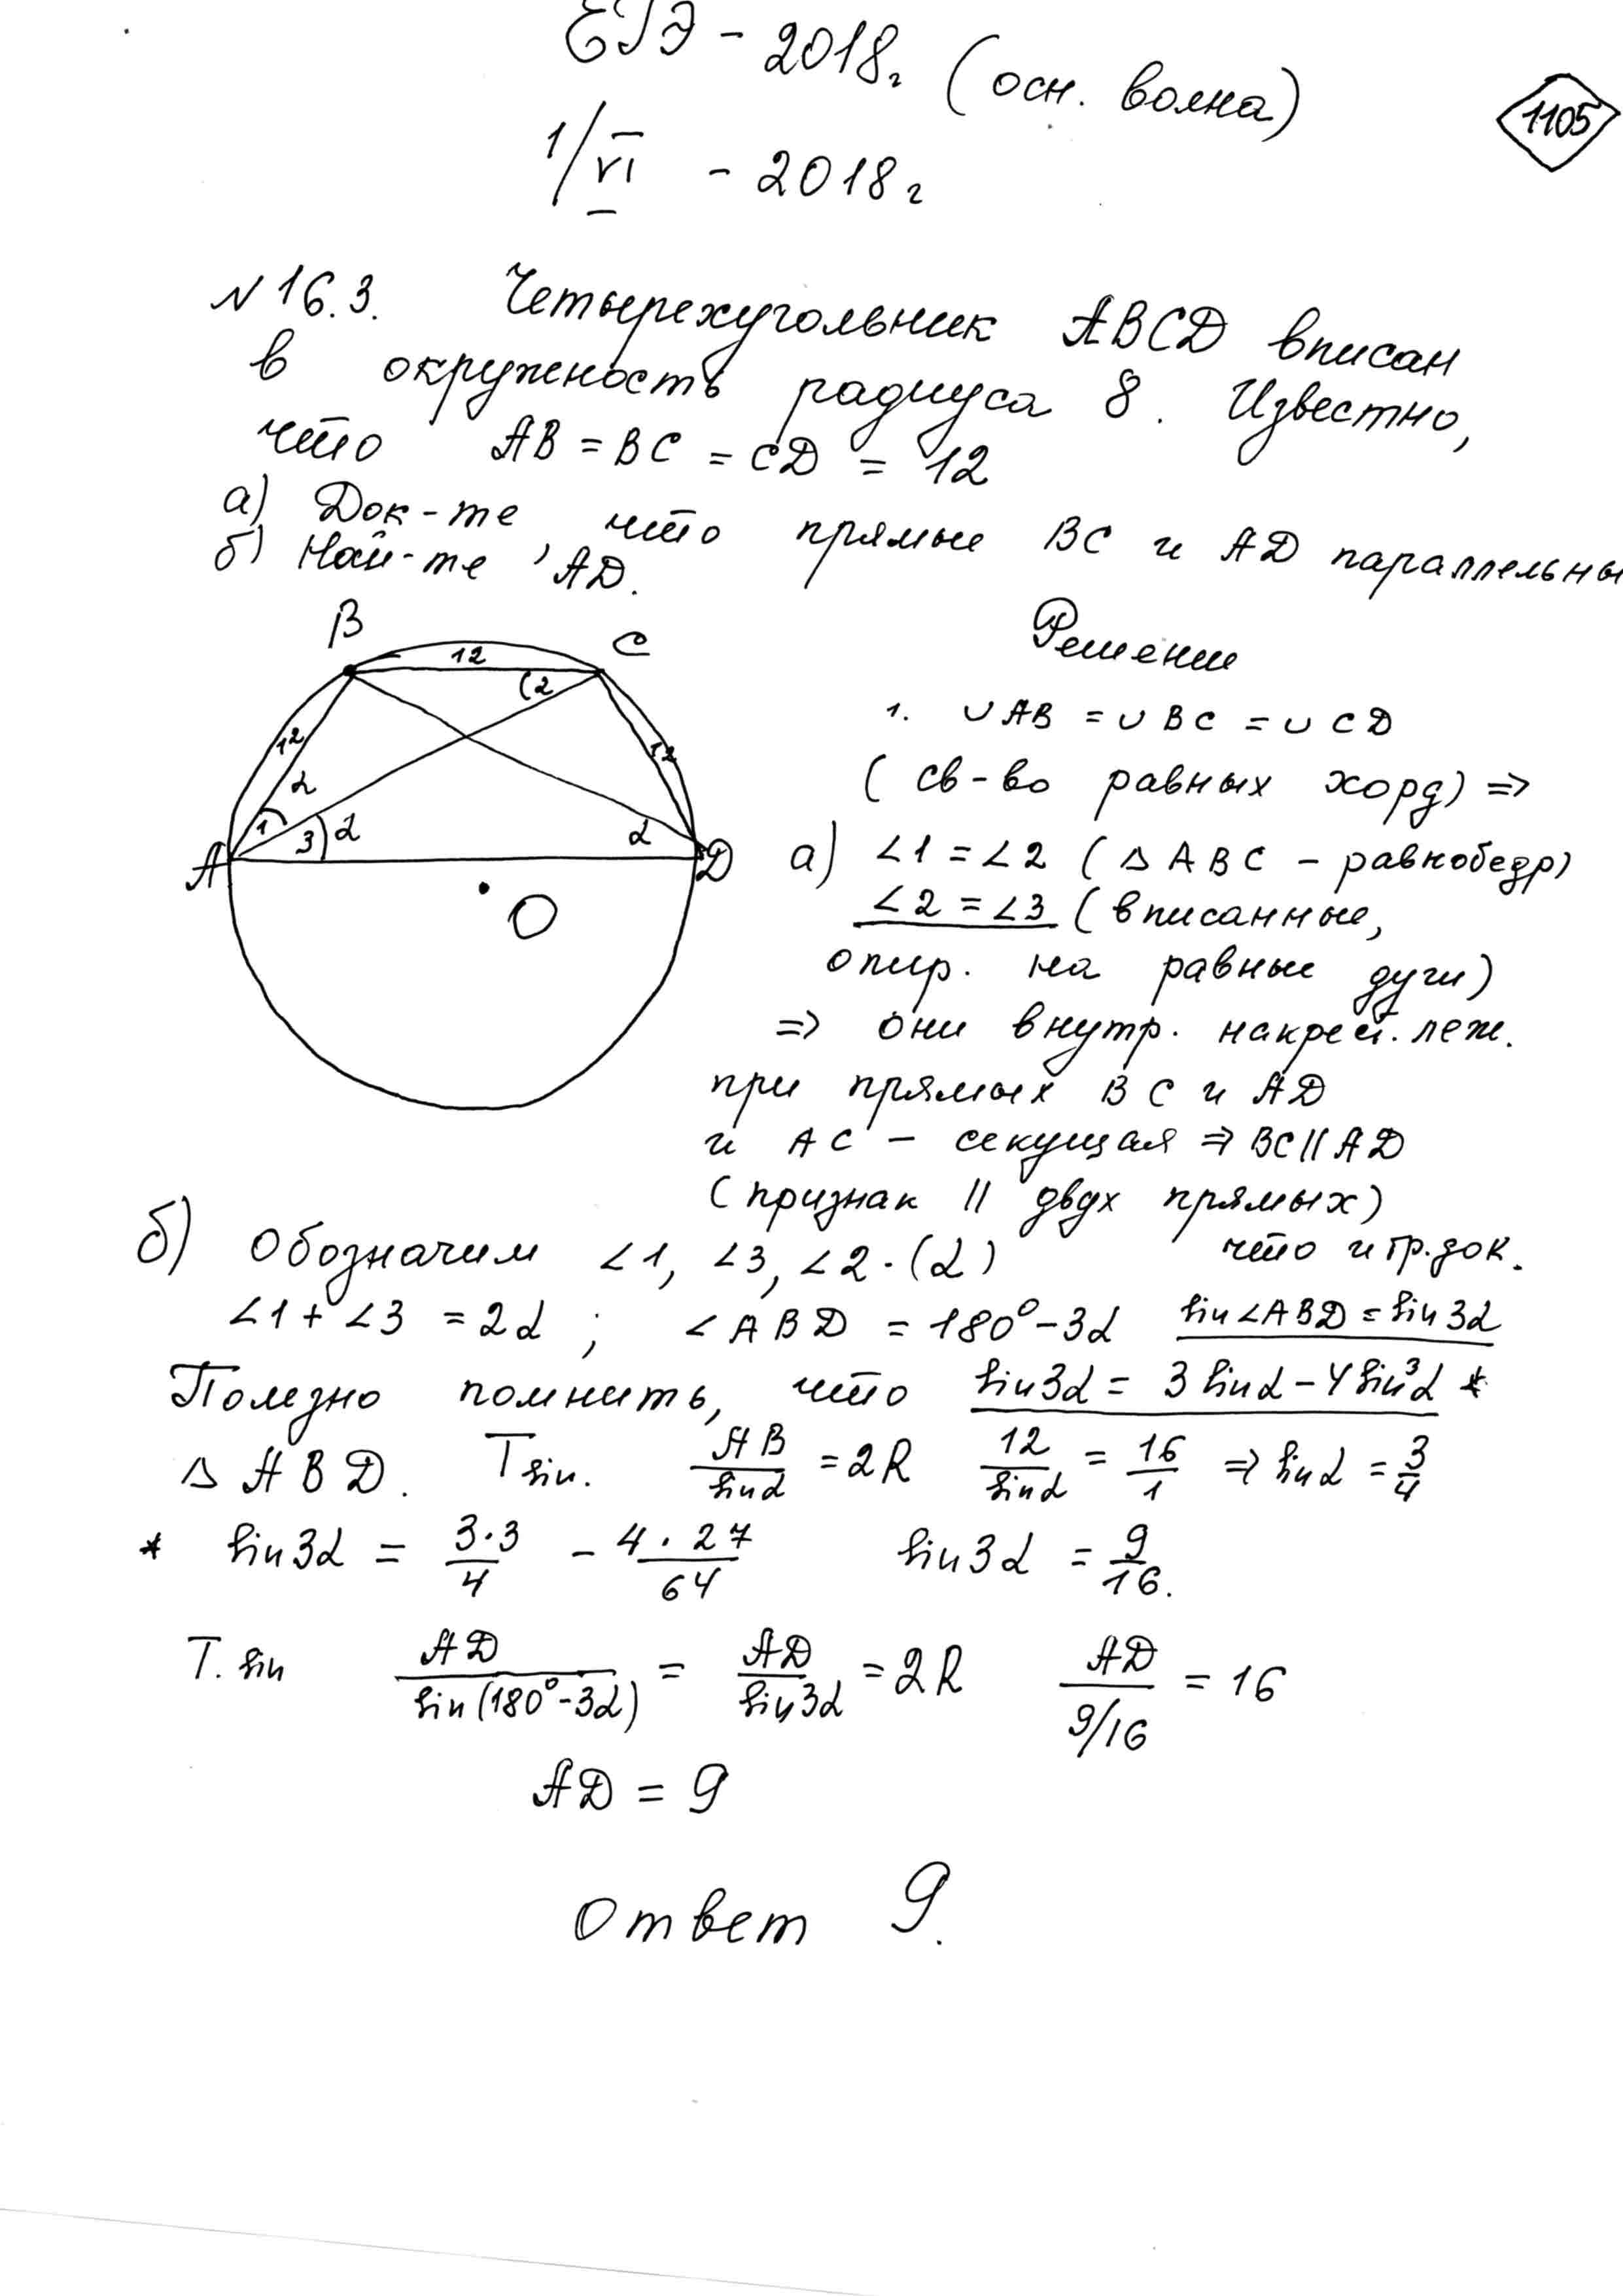 ЕГЭ - 2018г (осн. волна)
1105
1/VI - 2018г
N 16.3. Четырехугольник ABCD вписан
в окружность радиуса 8. Известно,
что AB = BC = CD = 12
а) Док-те, что прямые BC и AD параллельны
б) Най-те AD.
B
C
12
(2
12
12
2
1
3
2
2
A
D
O
Решение
1. ∪AB = ∪BC = ∪CD
(св-во равных хорд) =>
а) ∠1 = ∠2 (△ABC - равнобедр)
∠2 = ∠3 (вписанные,
опир. на равные дуги)
=> они внутр. накрест. леж.
при прямых BC и AD
и AC - секущая => BC || AD
(признак || двух прямых)
что и тр. док.
б) Обозначим ∠1, ∠3, ∠2 - (α)
∠1 + ∠3 = 2α ; ∠ABD = 180° - 3α sin∠ABD = sin3α
Полезно помнить, что sin3α = 3sinα - 4sin³α *
△ABD. Tsin. AB/sinα = 2R 12/sinα = 16/1 => sinα = 3/4
* sin3α = 3·3/4 - 4·27/64 sin3α = 9/16.
T. sin AD/sin(180°-3α) = AD/sin3α = 2R AD/9/16 = 16
AD = 9
Ответ 9.